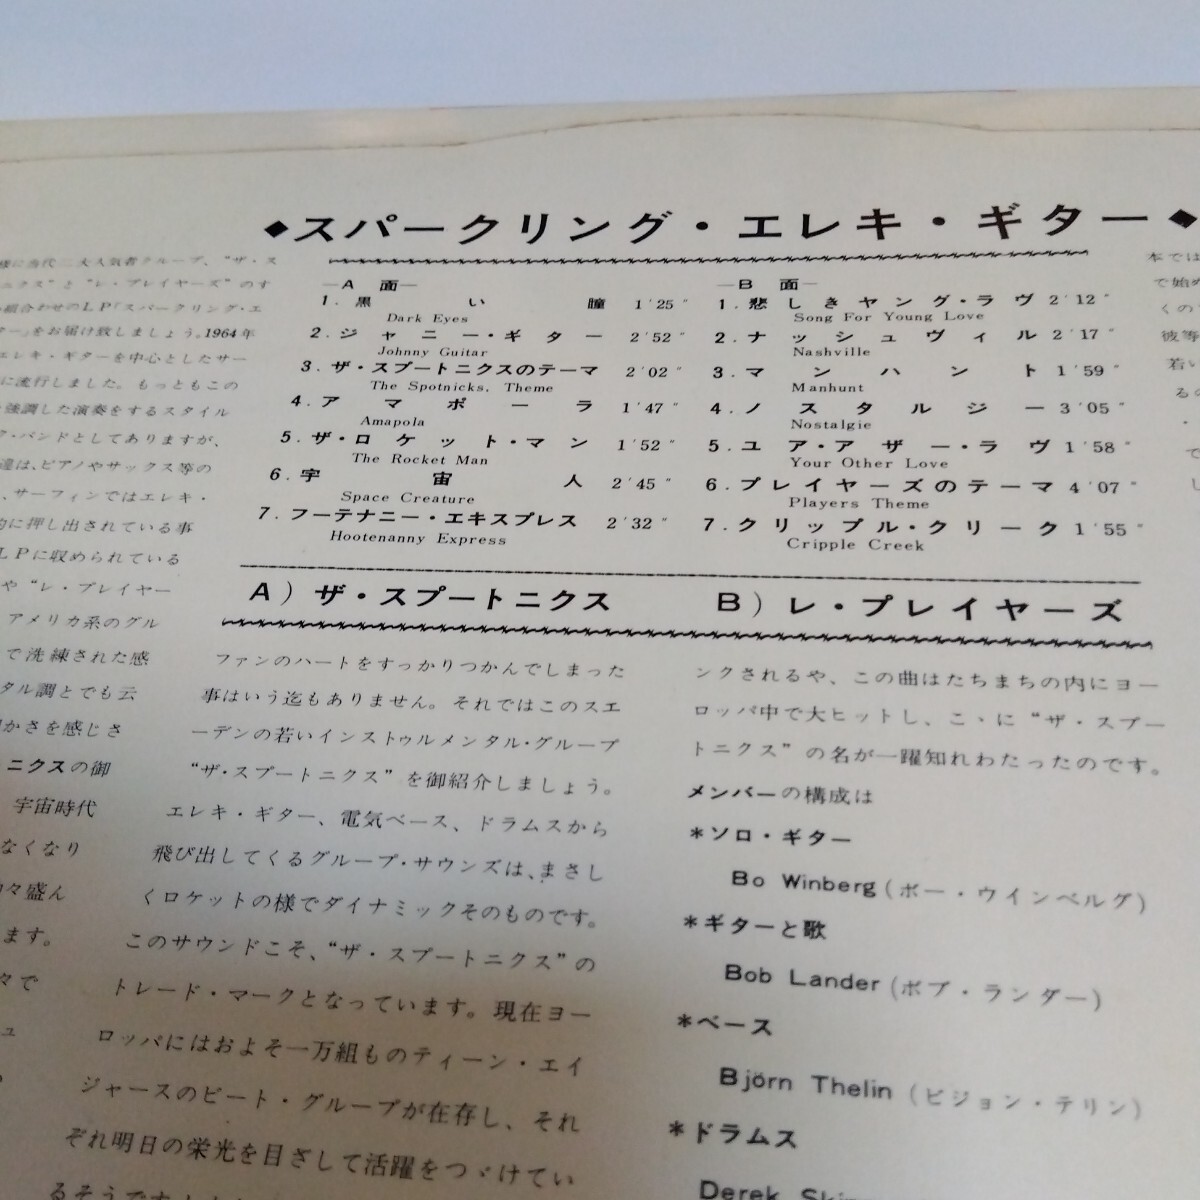 ◆スパークリング・エレキ・ギター◆
―A 面―
1. 黒い瞳 1′25″
Dark Eyes
2. ジャニー・ギター 2′52″
Johnny Guitar
3. ザ・スプートニクスのテーマ 2′02″
The Spotnicks, Theme
4. アマポーラ 1′47″
Amapola
5. ザ・ロケット・マン 1′52″
The Rocket Man
6. 宇宙人 2′45″
Space Creature
7. フーテナニー・エキスプレス 2′32″
Hootenanny Express
―B 面―
1. 悲しきヤング・ラヴ 2′12″
Song For Young Love
2. ナッシュヴィル 2′17″
Nashville
3. マンハント 1′59″
Manhunt
4. ノスタルジー 3′05″
Nostalgie
5. ユア・アザー・ラヴ 1′58″
Your Other Love
6. プレイヤーズのテーマ 4′07″
Players Theme
7. クリップル・クリーク 1′55″
Cripple Creek
A) ザ・スプートニクス B) レ・プレイヤーズ
様に当代二大人気者グループ、“ザ・ス
ニクス”と“レ・プレイヤーズ”のす
い組合わせのLP「スパークリング・エ
ター」をお届け致しましょう。1964年
エレキ・ギターを中心としたサー
に流行しました。もっともこの
強調した演奏をするスタイル
ク・バンドとしてありますが、
達は、ピアノやサックス等の
、サーフィンではエレキ・
的に押し出されている事
LPに収められている
や“レ・プレイヤー
アメリカ系のグル
て洗練された感
タル調とでも云
かさを感じさ
ニクスの御
宇宙時代
なくなり
々盛ん
ます。
々で
ュ
ファンのハートをすっかりつかんでしまった
事はいう迄もありません。それではこのスエ
ーデンの若いインストゥルメンタル・グループ
“ザ・スプートニクス”を御紹介しましょう。
エレキ・ギター、電気ベース、ドラムスから
飛び出してくるグループ・サウンズは、まさし
くロケットの様でダイナミックそのものです。
このサウンドこそ、“ザ・スプートニクス”の
トレード・マークとなっています。現在ヨー
ロッパにはおよそ一万組ものティーン・エイ
ジャースのビート・グループが存在し、それ
ぞれ明日の栄光を目ざして活躍をつゞけてい
るそうです
ンクされるや、この曲はたちまちの内にヨー
ロッパ中で大ヒットし、こゝに“ザ・スプー
トニクス”の名が一躍知れわたったのです。
メンバーの構成は
*ソロ・ギター
Bo Winberg(ボー・ウインベルグ)
*ギターと歌
Bob Lander(ボブ・ランダー)
*ベース
Björn Thelin (ビジョン・テリン)
*ドラムス
Derek
本では
で始め
くの
彼等
若い
るの
・
で
し